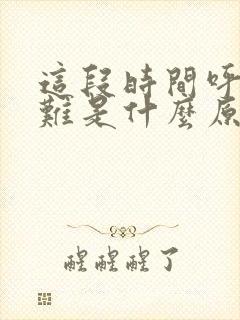 這段時間呼
難是什麼原
醒醒醒了